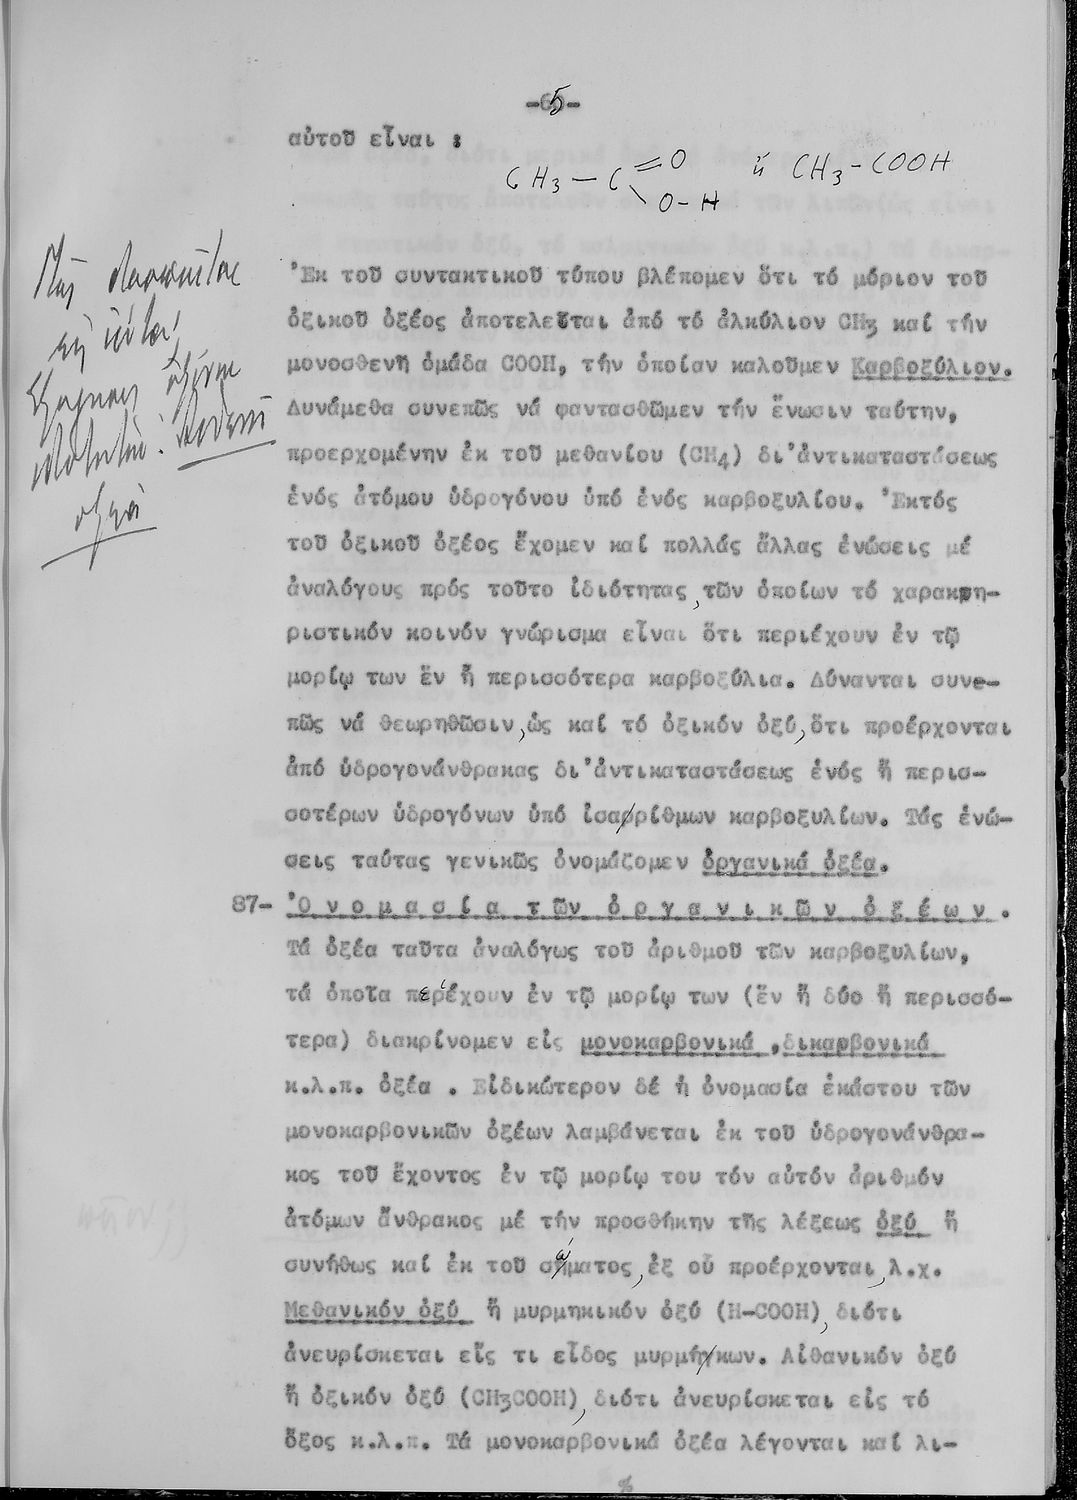 -65-
αὐτοῦ εἶναι :
CH3 — C =O O-H ἤ CH3-COOH
Ἐκ τοῦ συντακτικοῦ τύπου βλέπομεν ὅτι τό μόριον τοῦ
ὀξικοῦ ὀξέος ἀποτελεῖται ἀπό τό ἀλκύλιον CH3 καί τήν
μονοσθενῆ ὁμάδα COOH, τήν ὁποίαν καλοῦμεν Καρβοξύλιον.
Δυνάμεθα συνεπῶς νά φαντασθῶμεν τήν ἕνωσιν ταύτην,
προερχομένην ἐκ τοῦ μεθανίου (CH4) δι'ἀντικαταστάσεως
ἑνός ἀτόμου ὑδρογόνου ὑπό ἑνός καρβοξυλίου. Ἐκτός
τοῦ ὀξικοῦ ὀξέος ἔχομεν καί πολλάς ἄλλας ἑνώσεις μέ
ἀναλόγους πρός τοῦτο ἰδιότητας, τῶν ὁποίων τό χαρακτη-
ριστικόν κοινόν γνώρισμα εἶναι ὅτι περιέχουν ἐν τῷ
μορίῳ των ἕν ἤ περισσότερα καρβοξύλια. Δύνανται συνε-
πῶς νά θεωρηθῶσιν, ὡς καί τό ὀξικόν ὀξύ, ὅτι προέρχονται
ἀπό ὑδρογονάνθρακας δι'ἀντικαταστάσεως ἑνός ἤ περισ-
σοτέρων ὑδρογόνων ὑπό ἰσαρίθμων καρβοξυλίων. Τάς ἑνώ-
σεις ταύτας γενικῶς ὀνομάζομεν ὀργανικά ὀξέα.
87- Ὀνομασία τῶν ὀργανικῶν ὀξέων.
Τά ὀξέα ταῦτα ἀναλόγως τοῦ ἀριθμοῦ τῶν καρβοξυλίων,
τά ὁποῖα περιέχουν ἐν τῷ μορίῳ των (ἕν ἤ δύο ἤ περισσό-
τερα) διακρίνομεν εἰς μονοκαρβονικά ,δικαρβονικά
κ.λ.π. ὀξέα . Εἰδικώτερον δέ ἡ ὀνομασία ἑκάστου τῶν
μονοκαρβονικῶν ὀξέων λαμβάνεται ἐκ τοῦ ὑδρογονάνθρα-
κος τοῦ ἔχοντος ἐν τῷ μορίῳ του τόν αὐτόν ἀριθμόν
ἀτόμων ἄνθρακος μέ τήν προσθήκην τῆς λέξεως ὀξύ ἤ
συνήθως καί ἐκ τοῦ σώματος, ἐξ οὗ προέρχονται, λ.χ.
Μεθανικόν ὀξύ ἤ μυρμηκικόν ὀξύ (H-COOH), διότι
ἀνευρίσκεται εἴς τι εἶδος μυρμήκων. Αἰθανικόν ὀξύ
ἤ ὀξικόν ὀξύ (CH3COOH), διότι ἀνευρίσκεται εἰς τό
ὄξος κ.λ.π. Τά μονοκαρβονικά ὀξέα λέγονται καί λι-
%